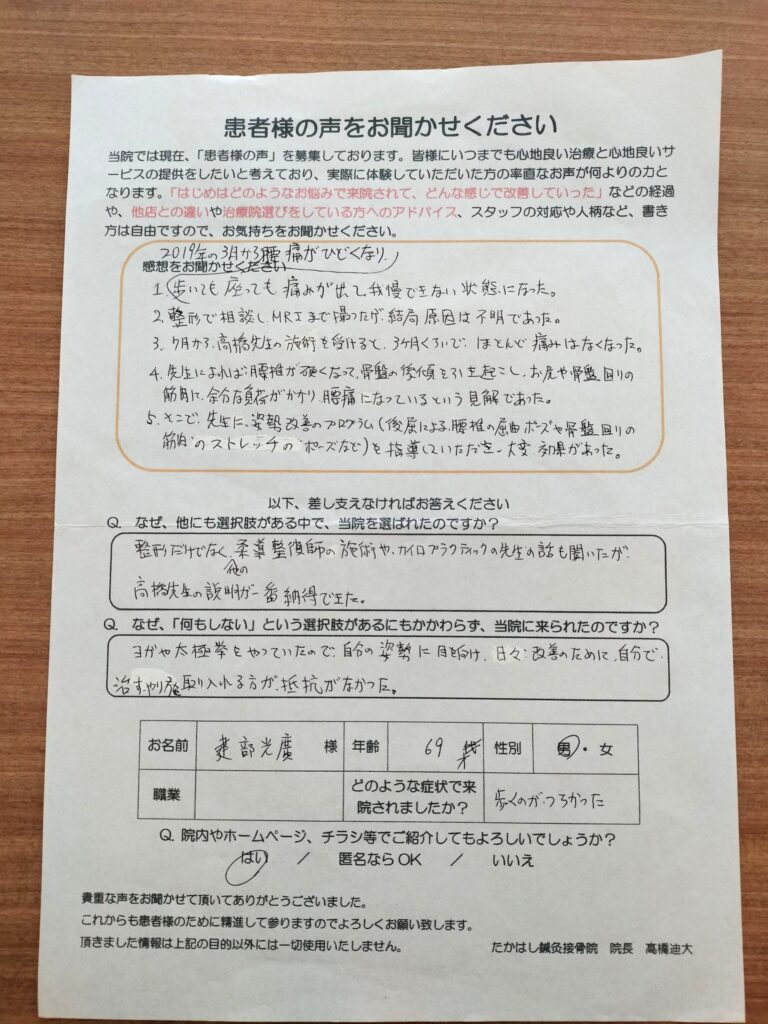 患者様の声をお聞かせください
当院では現在、「患者様の声」を募集しております。皆様にいつまでも心地良い治療と心地良いサ
ービスの提供をしたいと考えており、実際に体験していただいた方の率直なお声が何よりの力と
なります。「はじめはどのようなお悩みで来院されて、どんな感じで改善していった」などの経過
や、他店との違いや治療院選びをしている方へのアドバイス、スタッフの対応や人柄など、書き
方は自由ですので、お気持ちをお聞かせください。
2019年の3月から腰痛がひどくなり
感想をお聞かせください
1. 歩いても座っても痛みが出て我慢できない状態になった。
2. 整形で相談しMRIまで撮ったが、結局原因は不明であった。
3. 7月から、高橋先生の施術を受けると、3ヶ月くらいで、ほとんど痛みはなくなった。
4. 先生によれば、腰椎が硬くなって、骨盤の後傾を引き起こし、お尻や骨盤回りの
筋肉に、余分な負荷がかかり、腰痛になっているという見解であった。
5. そこで、先生に、姿勢改善のプログラム(後屈による、腰椎の屈曲ポーズや骨盤回りの
筋肉のストレッチのポーズなど)を指導していただき、大変、効果があった。
以下、差し支えなければお答えください
Q. なぜ、他にも選択肢がある中で、当院を選ばれたのですか?
整形だけでなく、他の柔導整復師の施術や、カイロプラクティックの先生の話も聞いたが、
高橋先生の説明が一番納得できた。
Q. なぜ、「何もしない」という選択肢があるにもかかわらず、当院に来られたのですか?
ヨガや太極拳をやっていたので、自分の姿勢に目を向け、日々改善のために、自分で
治す、やり方を取り入れる方が、抵抗がなかった。
お名前 建部光廣 様 年齢 69 才 性別 男・女
職業 どのような症状で来院されましたか? 歩くのが、つらかった
Q. 院内やホームページ、チラシ等でご紹介してもよろしいでしょうか?
はい / 匿名ならOK / いいえ
貴重な声をお聞かせて頂いてありがとうございました。
これからも患者様のために精進して参りますのでよろしくお願い致します。
頂きました情報は上記の目的以外には一切使用いたしません。 たかはし鍼灸接骨院 院長 高橋迪大